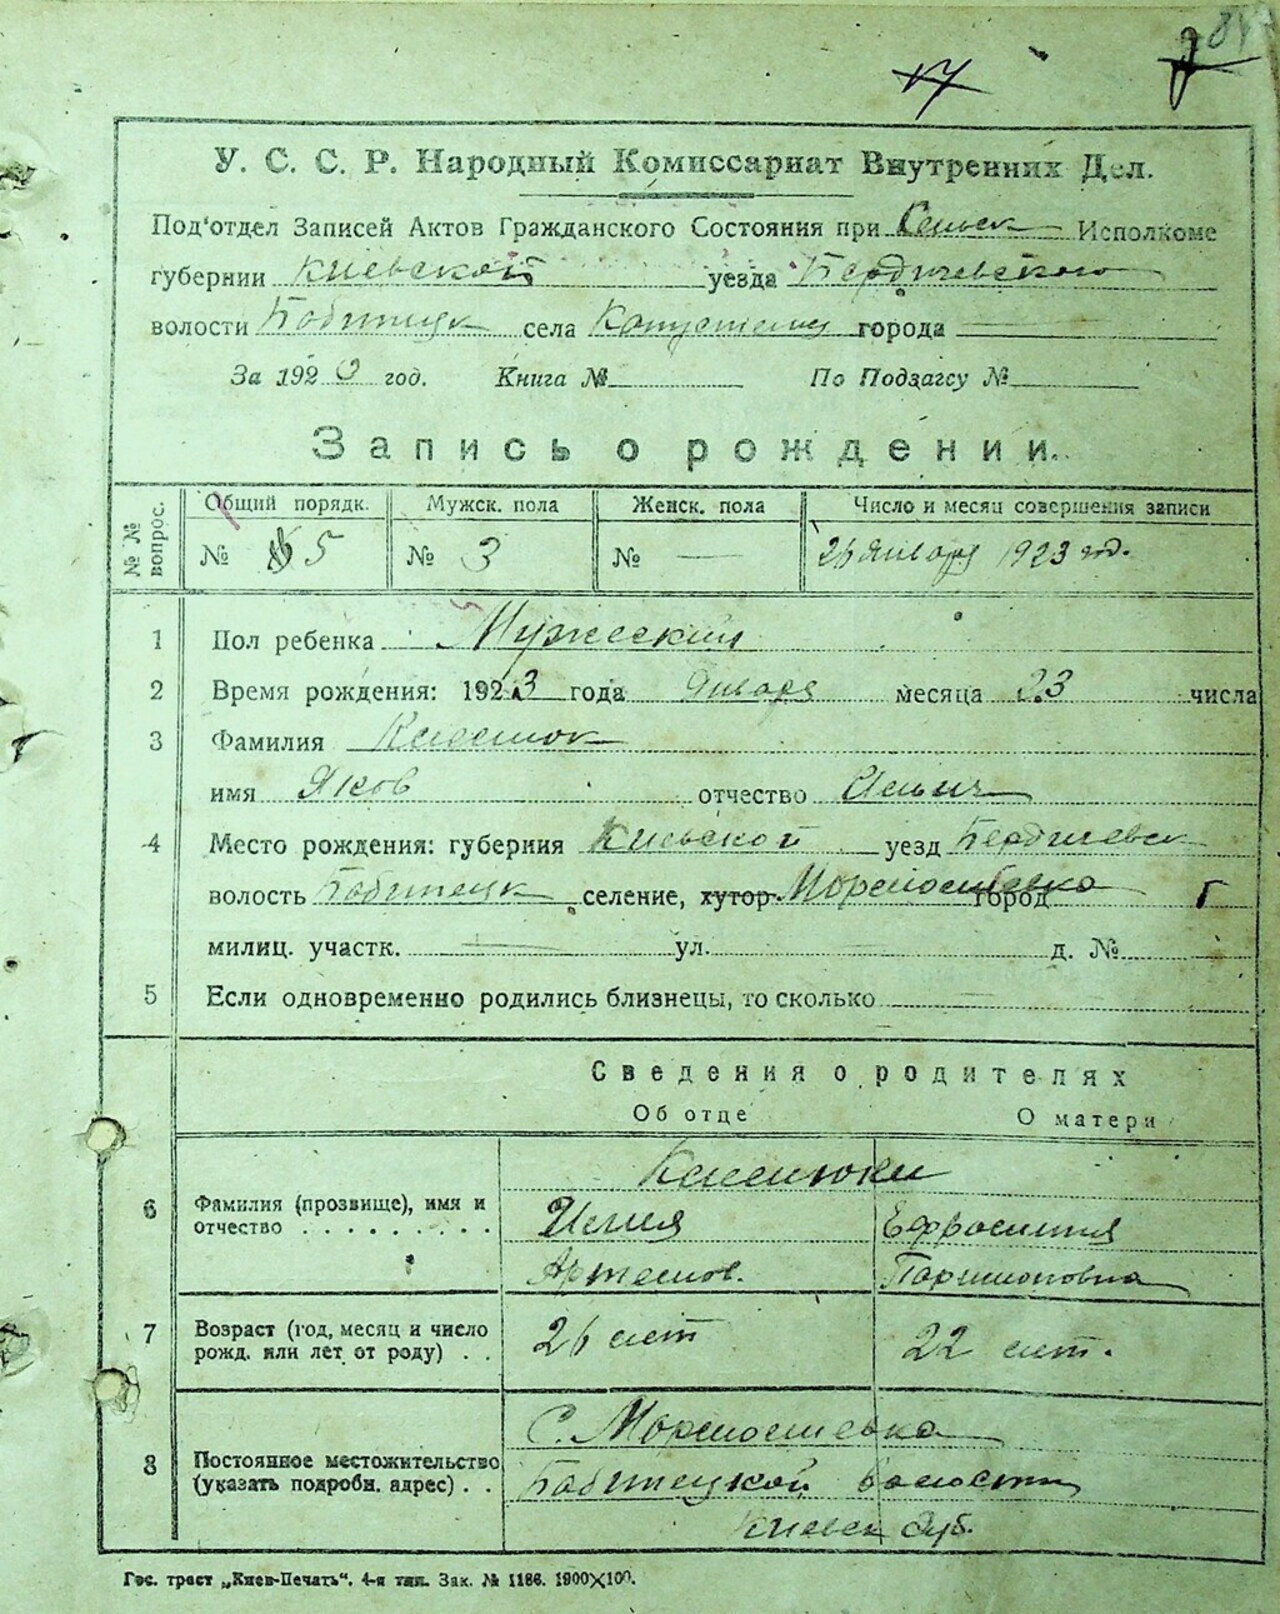 17
У. С. С. Р. Народный Комиссариат Внутренних Дел.
Под'отдел Записей Актов Гражданского Состояния при Сельск Исполкоме
губернии Киевской уезда Бердичевского
волости села города
За 1923 год. Книга № По Подзагсу №
Запись о рождении.
№ № вопрос. Общий порядк. Мужск. пола Женск. пола Число и месяц совершения записи
№ 5 № 3 № — 26 Января 1923 год.
1 Пол ребенка Мужеский
2 Время рождения: 1923 года Января месяца 23 числа
3 Фамилия
имя Яков отчество Ильич
4 Место рождения: губерния Киевской уезд Бердичевск
волость селение, хутор город Г
милиц. участк. ул. д. №
5 Если одновременно родились близнецы, то сколько
Сведения о родителях
Об отце О матери
6 Фамилия (прозвище), имя и
отчество Илия Ефросиния
Артемов. Парамоновна
7 Возраст (год, месяц и число
рожд. или лет от роду) . . 26 лет 22 лет.
8 Постоянное местожительство
(указать подробн. адрес) . . волости
Киевск губ.
Гос. трест „Киев-Печать". 4-я тип. Зак. № 1186. 1900×100.